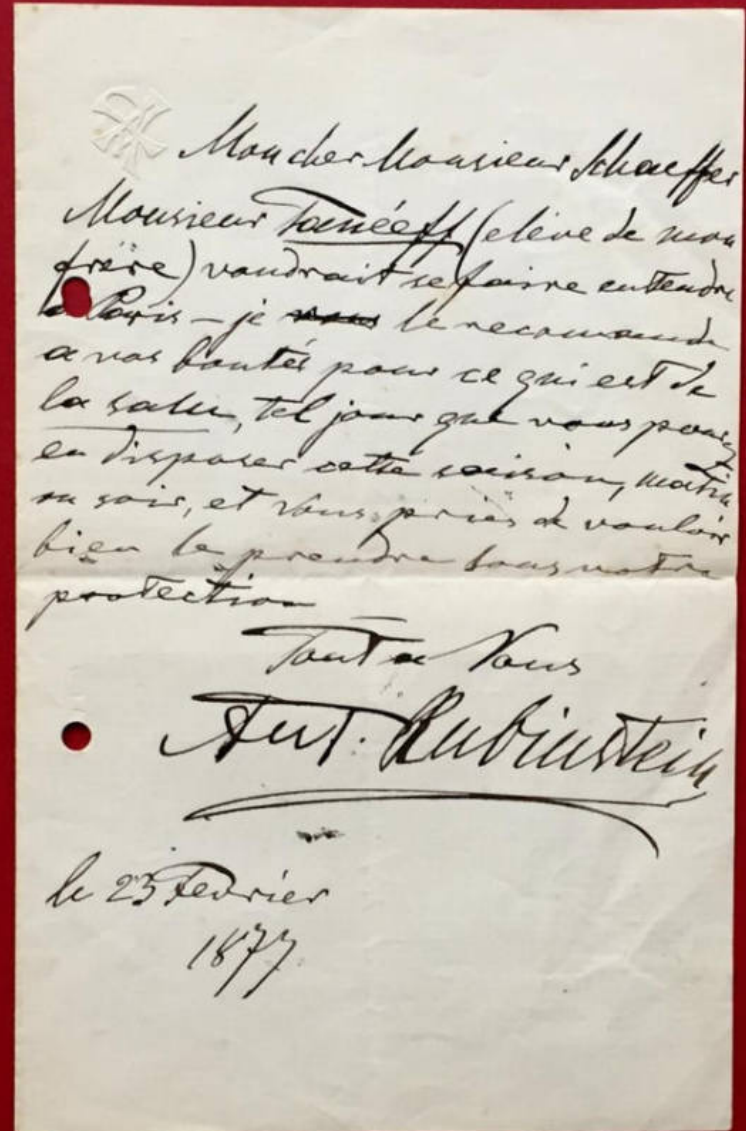 Mon cher Monsieur Schaeffer
Monsieur Tanéeff (elève de mon
frère) voudrait se faire entendre
a Paris – je vous le recomande
a vos bontés pour ce qui est de
la salle, tel jour que vous pouvez
en disposer cette saison, matin
ou soir, et vous pries de vouloir
bien le prendre sous votre
protection
Tout a Vous
Ant. Rubinstein
le 23 Fevrier
1877